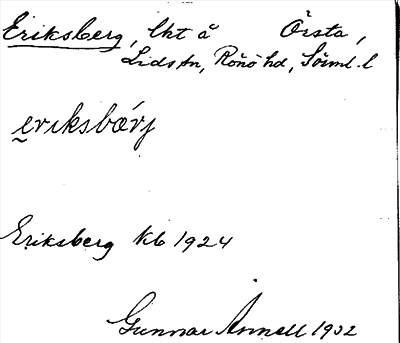 Eriksberg, lht å Örsta,
Lids sn, Rönö hd, Söiml. l
eriksbärj
Eriksberg kb 1924
Gunnar Annell 1932